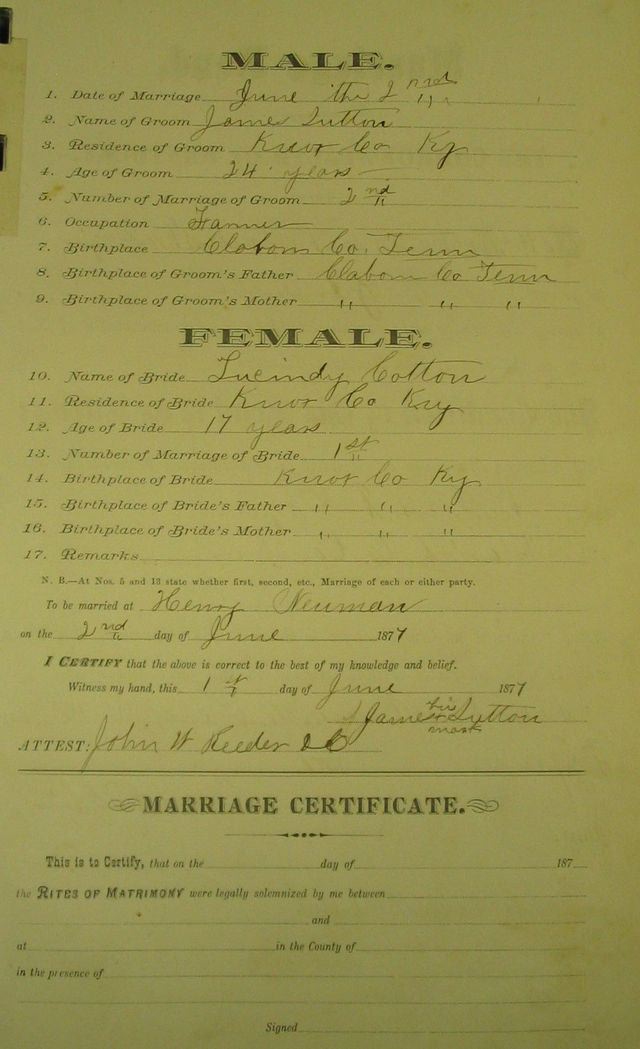 MALE.
1. Date of Marriage June the 2nd
2. Name of Groom James Sutton
3. Residence of Groom Knox Co Ky
4. Age of Groom 24 years
5. Number of Marriage of Groom 2nd
6. Occupation Farmer
7. Birthplace Claborn Co. Tenn
8. Birthplace of Groom's Father Claborn Co Tenn
9. Birthplace of Groom's Mother " " "
FEMALE.
10. Name of Bride Lucindy Cotton
11. Residence of Bride Knox Co Ky
12. Age of Bride 17 years
13. Number of Marriage of Bride 1st
14. Birthplace of Bride Knox Co Ky
15. Birthplace of Bride's Father " " "
16. Birthplace of Bride's Mother " " "
17. Remarks
N. B.—At Nos. 5 and 13 state whether first, second, etc., Marriage of each or either party.
To be married at Henry Neuman
on the 2nd day of June 1877
I CERTIFY that the above is correct to the best of my knowledge and belief.
Witness my hand, this 1st day of June 1877
James his x mark Sutton
ATTEST: John W Reeder DC
MARRIAGE CERTIFICATE.
This is to Certify, that on the day of 187
the RITES OF MATRIMONY were legally solemnized by me between
and
at in the County of
in the presence of
Signed